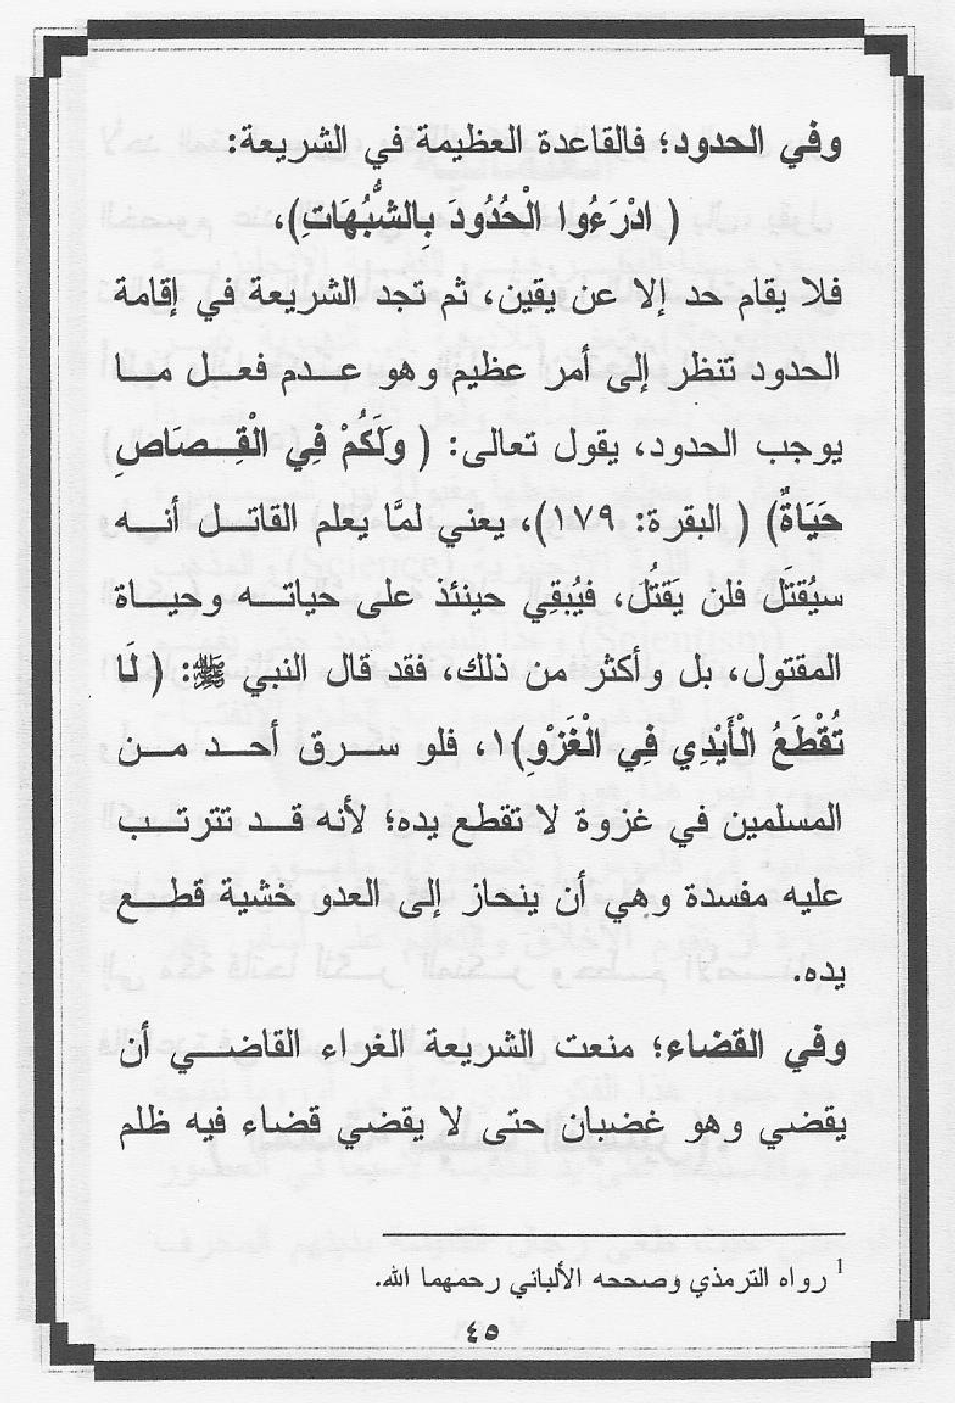 وفي الحدود؛ فالقاعدة العظيمة في الشريعة:
( ادْرَءُوا الْحُدُودَ بِالشُّبُهَاتِ)،
فلا يقام حد إلا عن يقين، ثم تجد الشريعة في إقامة
الحدود تنظر إلى أمر عظيم وهو عـدم فعـل مـا
يوجب الحدود، يقول تعالى: ( وَلَكُمْ فِي الْقِـصَاصِ
حَيَاةٌ) ( البقرة: ١٧٩)، يعني لمَّا يعلم القاتـل أنـه
سيُقتَل فلن يَقتُل، فيُبقِي حينئذ على حياتـه وحيـاة
المقتول، بل وأكثر من ذلك، فقد قال النبي ﷺ: ( لَا
تُقْطَعُ الْأَيْدِي فِي الْغَزْوِ)١، فلو سـرق أحـد مـن
المسلمين في غزوة لا تقطع يده؛ لأنه قـد تترتـب
عليه مفسدة وهي أن ينحاز إلى العدو خشية قطـع
يده.
وفي القضاء؛ منعت الشريعة الغراء القاضـي أن
يقضي وهو غضبان حتى لا يقضي قضاء فيه ظلم
1 رواه الترمذي وصححه الألباني رحمهما الله.
٤٥